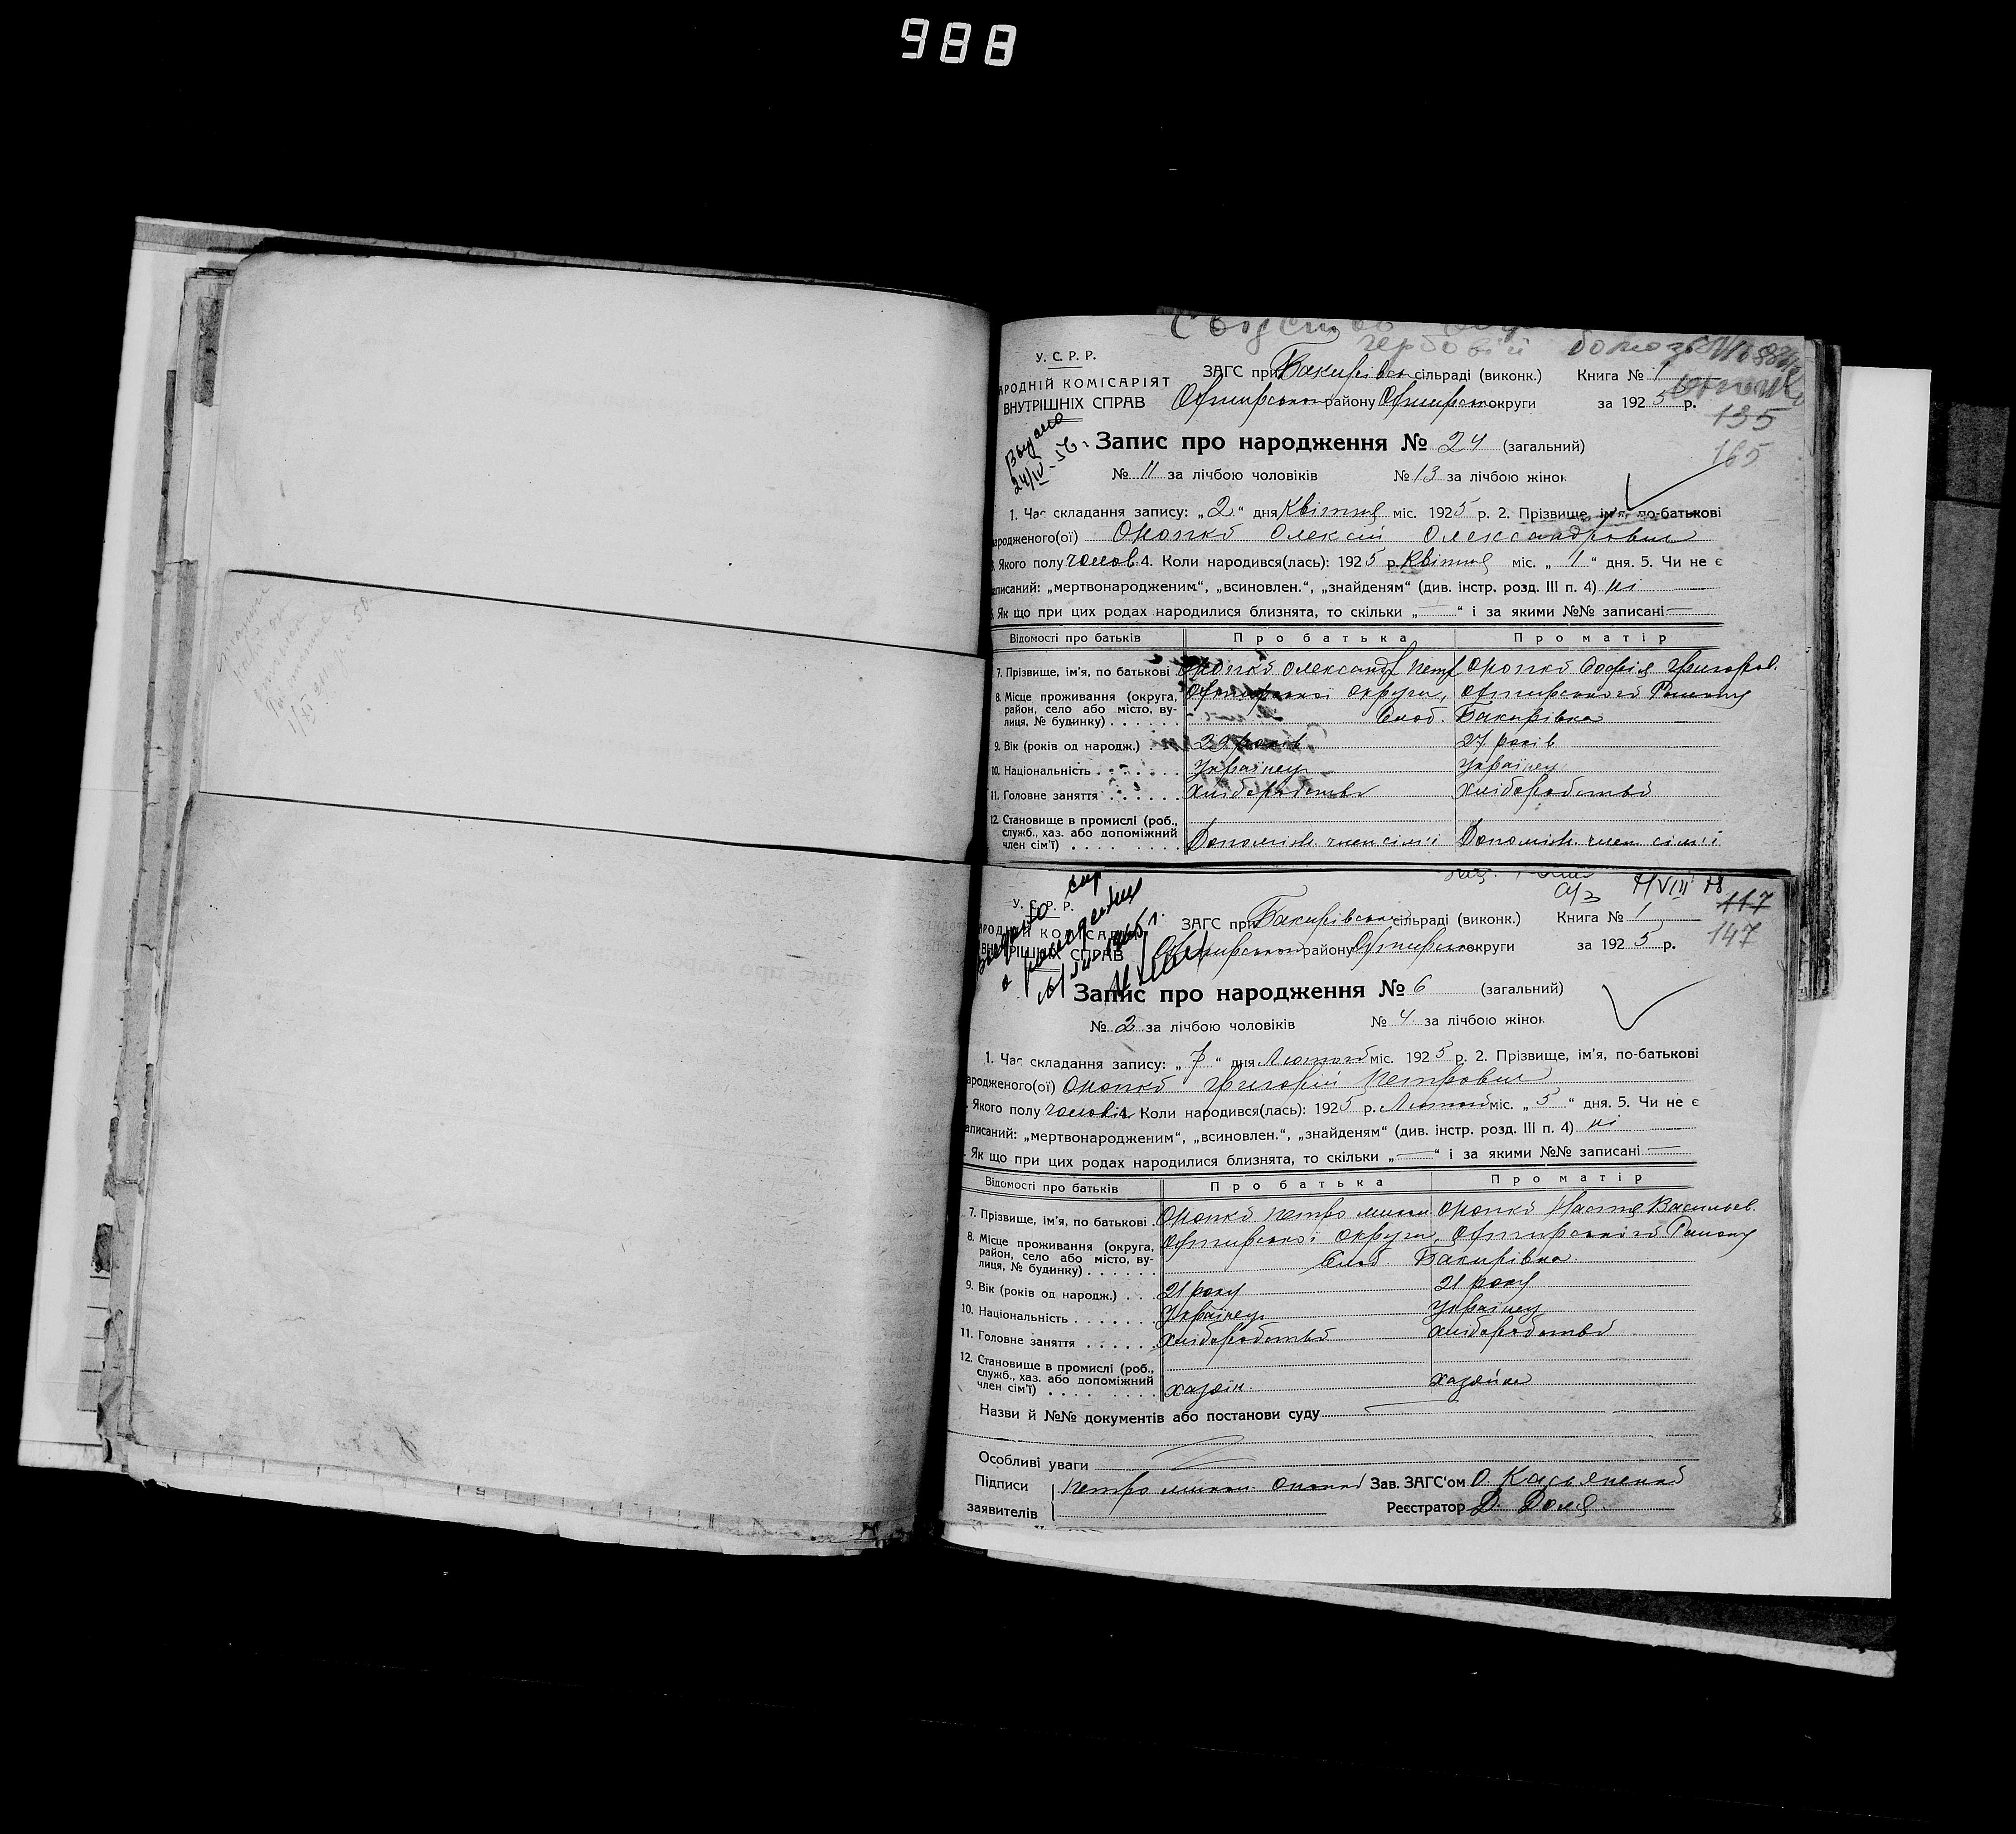 988
У. С. Р. Р.
АРОДНІЙ КОМІСАРІЯТ
ВНУТРІШНІХ СПРАВ
ЗАГС при Бакирівськ сільраді (виконк.) Книга № 1
Охтирськ району Охтирськ округи за 1925 р.
135
165
Видано
24/IV-56.
Запис про народження № 24 (загальний)
№ 11 за лічбою чоловіків № 13 за лічбою жінок
1. Час складання запису: „2“ дня Квітня міс. 1925 р. 2. Прізвище, ім'я, по-батькові
ародженого(ої) Онопко Олексій Олександрович
Якого полу чолов. 4. Коли народився(лась): 1925 р. Квітня міс. „1“ дня. 5. Чи не є
аписаний: „мертвонародженим“, „всиновлен.“, „знайденям“ (див. інстр. розд. III п. 4) ні
Як що при цих родах народилися близнята, то скільки „—“ і за якими №№ записані —
Відомості про батьків Про батька Про матір
7. Прізвище, ім'я, по батькові Онопко Олександр Петр Онопко Софія Григоров.
8. Місце проживання (округа, район, село або місто, вулиця, № будинку) Охтирської округи, Охтирського Району
Слоб. Бакирівка
9. Вік (років од народж.) 29 років 27 років
10. Національність Українец Українец
11. Головне заняття Хліборобство Хліборобство
12. Становище в промислі (роб.,
служб., хаз. або допоміжний
член сім'ї) Допоміж. член сім'ї Допоміж. член сім'ї
7/VIII 78
117
147
У. С. Р. Р.
РОДНІЙ КОМІСАРІЯТ
ВНУТРІШНІХ СПРАВ
ЗАГС при Бакирівськ сільраді (виконк.) Книга № 1
Охтирськ району Охтирськ округи за 1925 р.
Запис про народження № 6 (загальний)
№ 2 за лічбою чоловіків № 4 за лічбою жінок
1. Час складання запису: „7“ дня Лютого міс. 1925 р. 2. Прізвище, ім'я, по-батькові
ародженого(ої) Онопко Григорій Петрович
Якого полу чолові 4. Коли народився(лась): 1925 р. Лютого міс. „5“ дня. 5. Чи не є
аписаний: „мертвонародженим“, „всиновлен.“, „знайденям“ (див. інстр. розд. III п. 4) ні
Як що при цих родах народилися близнята, то скільки „—“ і за якими №№ записані —
Відомості про батьків Про батька Про матір
7. Прізвище, ім'я, по батькові Онопко Петро Онопко Настя Васильев.
8. Місце проживання (округа,
район, село або місто, ву-
лиця, № будинку) Охтирської округи, Охтирського Району
Слоб. Бакирівка
9. Вік (років од народж.) 21 року 21 року
10. Національність Українец Українец
11. Головне заняття Хліборобство Хліборобство
12. Становище в промислі (роб.,
служб., хаз. або допоміжний
член сім'ї) хазяін хазяйка
Назви й №№ документів або постанови суду
Особливі уваги
Підписи Петро Онопко Зав. ЗАГС'ом О. Касьяненко
заявителів Реєстратор Д. Доля